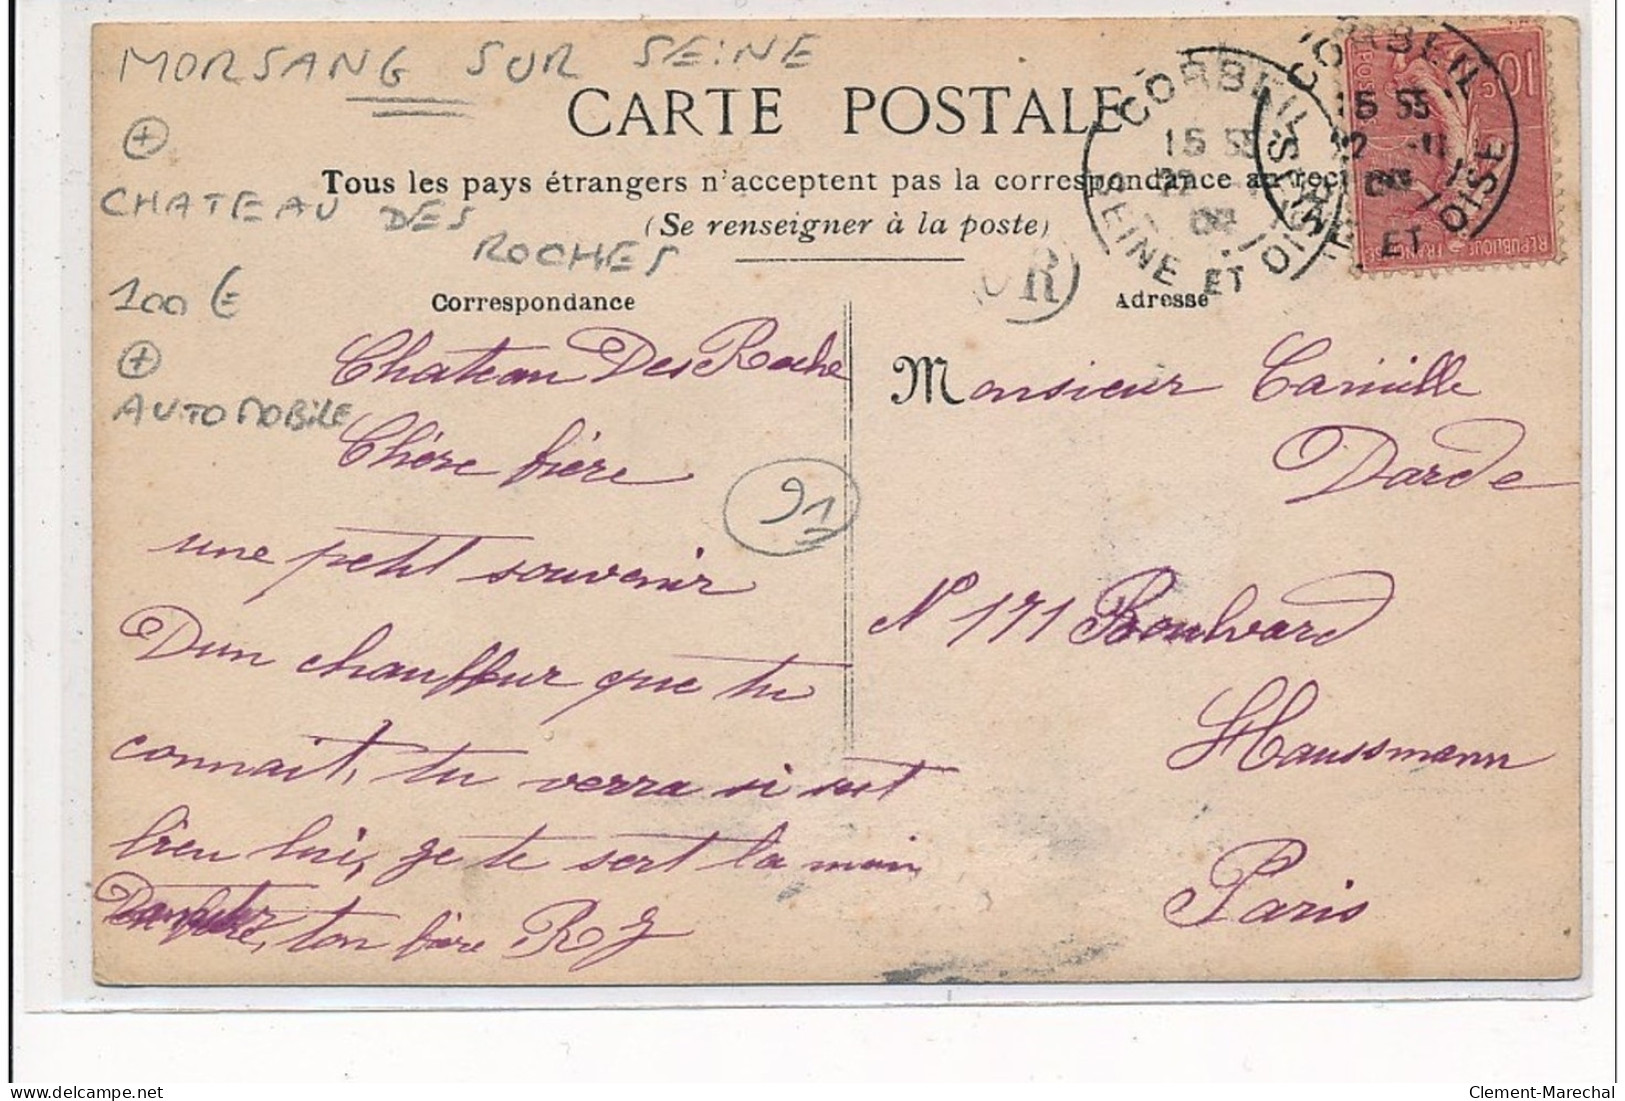 MORSANG SUR SEINE
CARTE POSTALE
Tous les pays étrangers n'acceptent pas la correspondance au rec
(Se renseigner à la poste)
+
CHATEAU DES
ROCHES
100 €
+
AUTOMOBILE
CORBEIL
15 55
22
SEINE ET OISE
CORBEIL
15 55
22 -11
SEINE ET OISE
10 c
POSTES
REPUBLIQUE FRANÇAISE
OR
Correspondance
Chateau Des Roche
Chère frère
une petit souvenir
Dun chauffeur que tu
connait, tu verra si set
bien lui, je te sert la main
ton frère R J
91
Adresse
Monsieur Camille
Darde
N° 171 Boulvard
Haussmann
Paris
Clement-Marechal